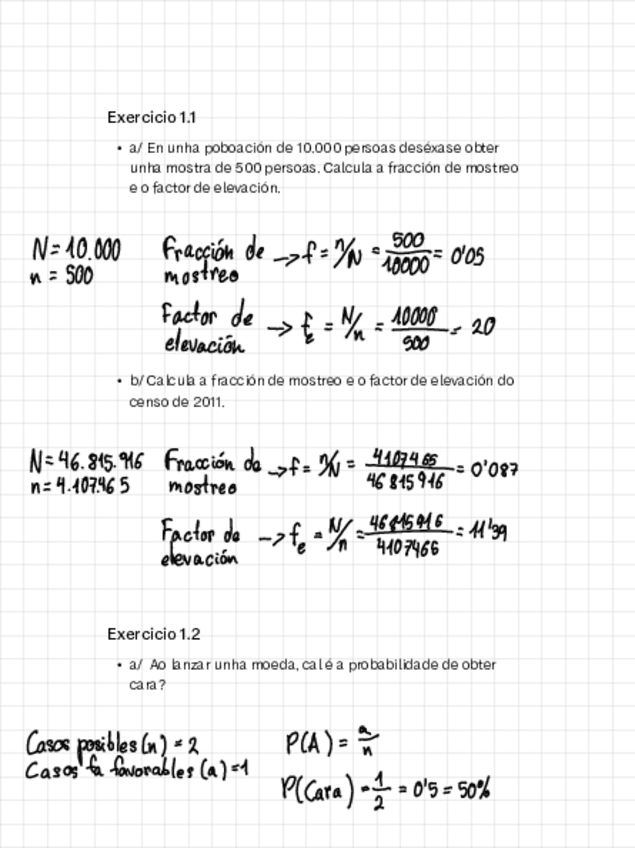 Exercicio 1.1
• a/ En unha poboación de 10.000 persoas deséxase obter
unha mostra de 500 persoas. Calcula a fracción de mostreo
e o factor de elevación.
N = 10.000 Fracción de mostreo → f = n/N = 500/10000 = 0'05
n = 500
Factor de elevación → fe = N/n = 10000/500 = 20
• b/ Calcula a fracción de mostreo e o factor de elevación do
censo de 2011.
N = 46.815.916 Fracción de mostreo → f = n/N = 4107465/46815916 = 0'087
n = 4.107.465
Factor de elevación → fe = N/n = 46815916/4107465 = 11'39
Exercicio 1.2
• a/ Ao lanzar unha moeda, cal é a probabilidade de obter
cara?
Casos posibles (n) = 2 P(A) = a/n
Casos fa favorables (a) = 1
P(Cara) = 1/2 = 0'5 = 50%